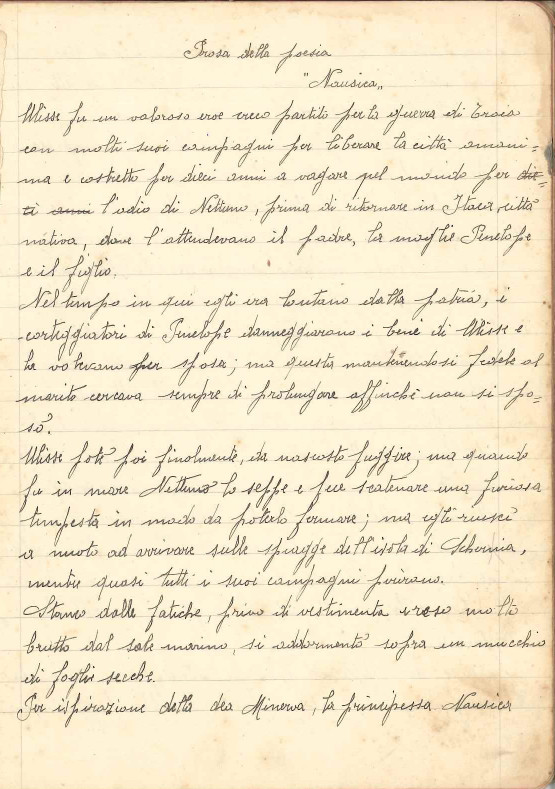 Prosa della poesia
"Nausica„
Ulisse fu un valoroso eroe greco partito per la guerra di Troia
con molti suoi compagni per liberare la città omoni=
ma e costretto per dieci anni a vagare pel mondo per die=
ci anni l'odio di Nettuno, prima di ritornare in Itaca, città
nativa, dove l'attendevano il padre, la moglie Penelope
e il figlio.
Nel tempo in qui egli era lontano dalla patria, i
corteggiatori di Penelope danneggiarono i beni di Ulisse e
la volevano per sposa; ma questa mantenendosi fedele al
marito cercava sempre di prolungare affinchè non si spo=
sò.
Ulisse potè poi finalmente, da nascosto fuggire; ma quando
fu in mare Nettuno lo seppe e fece scatenare una furiosa
tempesta in modo da poterlo fermare; ma egli riuscì
a nuoto ad arrivare sulle spiagge dell'isola di Scheria,
mentre quasi tutti i suoi compagni perirono.
Stanco dalle fatiche, privo di vestimenta e reso molto
brutto dal sale marino, si addormentò sopra un mucchio
di foglie secche.
Per ispirazione della dea Minerva, la principessa Nausica